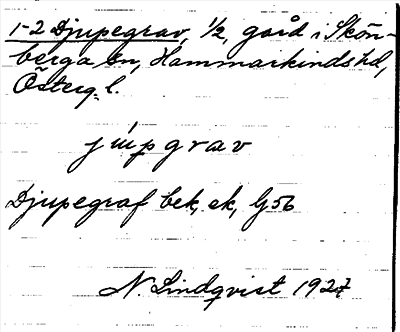 1-2 Djupegrav, 1/2, gård i Skön-
berga sn, Hammarkinds hd,
Österg. l.
júpgrav
Djupegraf bek, ek, G56
N. Lindqvist 1927